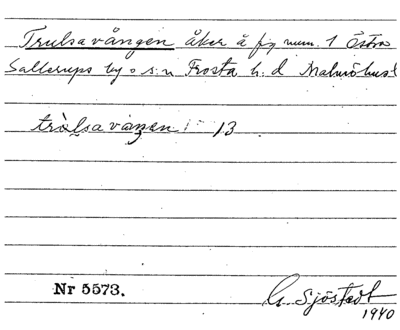 Trulsavången åker å fg num. 1 Östra
Sallerups by o. s:n Frosta h:d Malmöhus l
trùlsavàŋen 13
Nr 5573.
G. Sjöstedt
1940